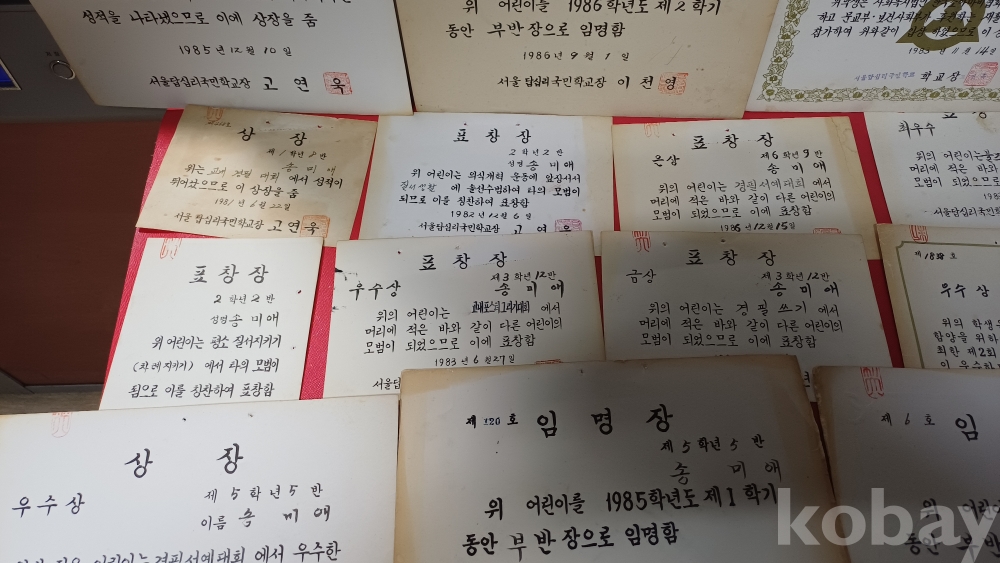 성적을 나타냈으므로 이에 상장을 줌
1985년 12월 10일
서울답십리국민학교장 고연욱
위 어린이를 1986학년도 제2학기
동안 부반장으로 임명함
1986년 9월 1일
서울답십리국민학교장 이천영
학교장
상장
제1학년 8반
송미애
위는 교내 경필 대회에서 성적이
뛰어났으므로 이 상장을 줌
1981년 6월 22일
서울답십리국민학교장 고연욱
표창장
2학년 2반
성명 송미애
위 어린이는 의식개혁 운동에 앞장서서
질서생활에 솔선수범하여 타의 모범이
되므로 이를 칭찬하여 표창함
1982년 12월 6일
서울답십리국민학교장 고연욱
표창장
은상 제6학년 9반
송미애
위의 어린이는 경필서예대회에서
머리에 적은 바와 같이 다른 어린이의
모범이 되었으므로 이에 표창함
1986년 12월 15일
최우수
위의 어린이는
머리에 적은
모범이 되었
198
서울답
표창장
2학년 2반
성명 송미애
위 어린이는 평소 질서지키기
(차례지키기)에서 타의 모범이
됨으로 이를 칭찬하여 표창함
표창장
우수상 제3학년 12반
송미애
위의 어린이는 교내포스터그리기대회에서
머리에 적은 바와 같이 다른 어린이의
모범이 되었으므로 이에 표창함
1983년 6월 27일
표창장
금상 제3학년 12반
송미애
위의 어린이는 경필쓰기에서
머리에 적은 바와 같이 다른 어린이의
모범이 되었으므로 이에 표창함
우수상
위의 학생은
함양을 위하
최한 제2회
이 우수하
상장
우수상 제5학년 5반
이름 송미애
어린이는 경필서예대회에서 우수한
제120호 임명장
제5학년 5반
송미애
위 어린이를 1985학년도 제1학기
동안 부반장으로 임명함
제6호 임
위 어린이
동안 부반
kobay